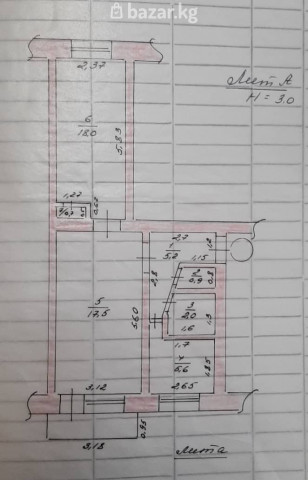 bazar.kg
Лит А
H = 3.0
2,37
6
18,0
5,83
1,27
0,62
2,7
1
5,2
1,15
2,8
2
0,9
3
2,0
1,3
1,6
5
17,5
5,60
1,7
4
6,6
2,65
3,12
3,18
0,95
Лит а